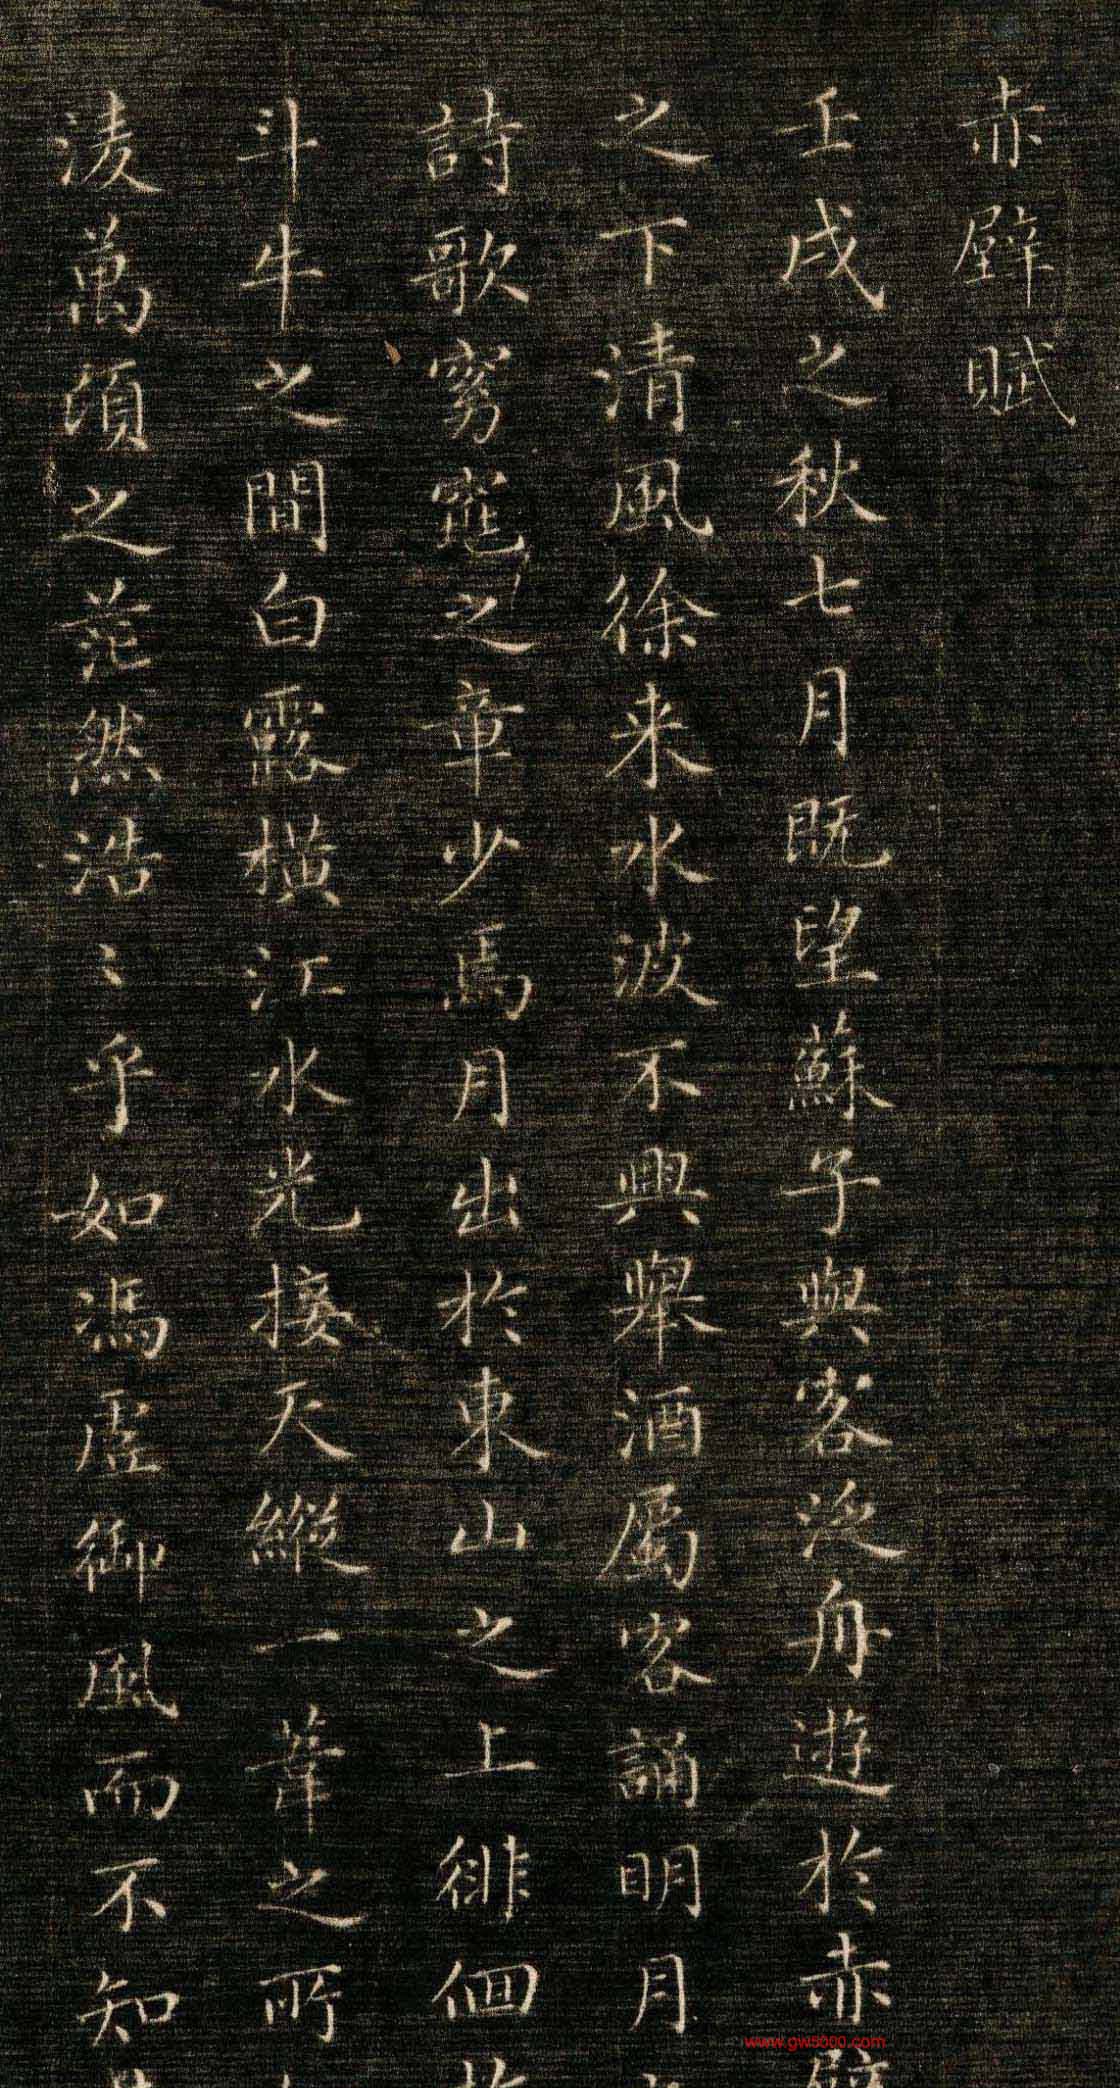 赤壁賦
壬戌之秋七月既望蘇子與客泛舟遊於赤壁
之下清風徐来水波不興舉酒屬客誦明月
詩歌窈窕之章少焉月出於東山之上徘徊
斗牛之間白露橫江水光接天縱一葦之所
凌萬頃之茫然浩〻乎如馮虛御風而不知
www.gw5000.com